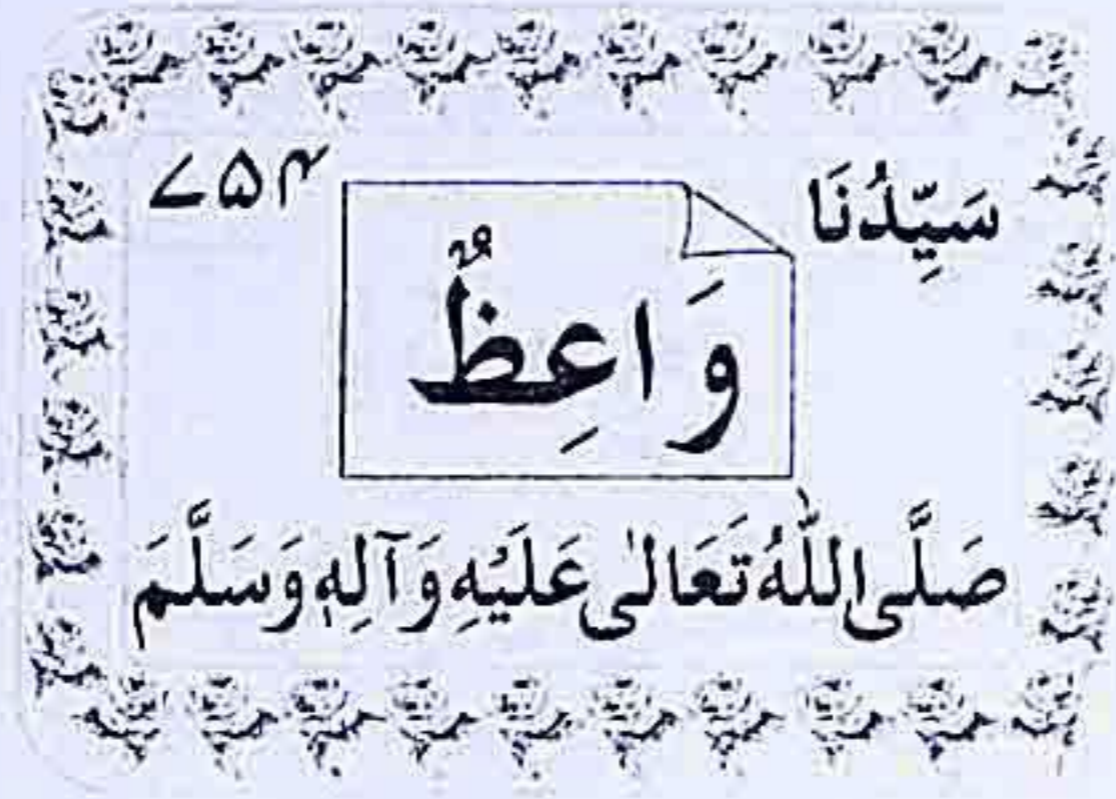 سَيِّدُنَا
۷۵۴
وَاعِظٌ
صَلَّى اللّٰهُ تَعَالٰى عَلَيْهِ وَآلِهٖ وَسَلَّمَ